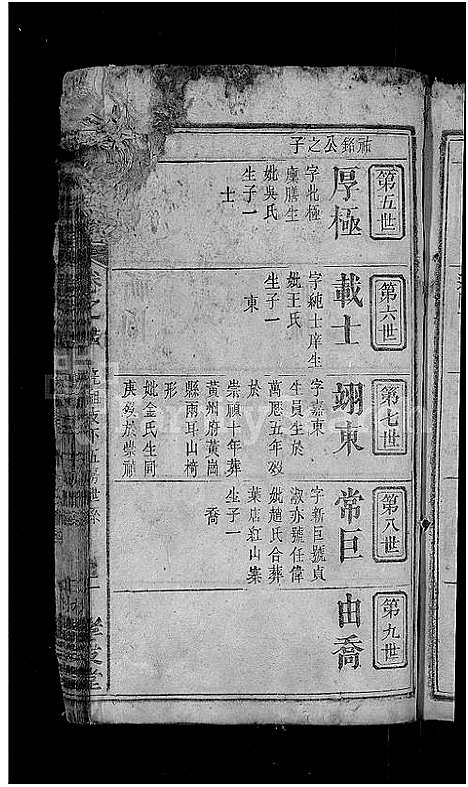 第五世
祉銘公之子
厚極
字北極
廩膳生
妣吳氏
生子一
士
第六世
載士
字純士庠生
妣王氏
生子一
東
第七世
翊東
字嘉東
生員生於
萬厯五年歿
於
崇禎十年葬
黃州府黃崗
縣雨耳山椅
形
妣金氏生同
庚歿於崇禎
第八世
常巨
字新巨號貞
淑亦號任偉
妣趙氏合葬
葉店紅山菴
生子一
喬
第九世
由喬
卷之
五房世系
堂